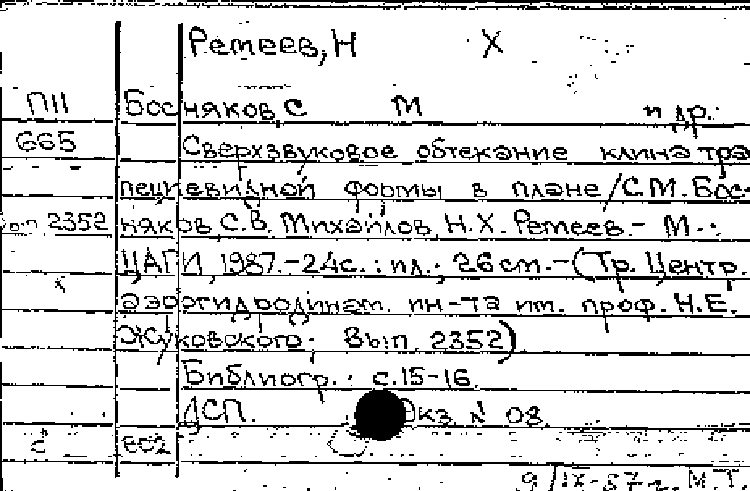 Ремеев, Н Х
П11 Босняков С М и др.
665 Сверхзвуковое обтекание клина тра-
пециевидной формы в плане / С.М. Бос-
Вып 2352 няков, С.В. Михайлов, Н.Х. Ремеев. - М.:
ЦАГИ, 1987. - 24с.: ил.; 26см. - (Тр. Центр.
аэрогидродинам. ин-та им. проф. Н.Е.
Жуковского; Вып. 2352)
Библиогр.: с.15-16.
ДСП. Экз. № 08.
2 602
9/IX-87г. М.Т.